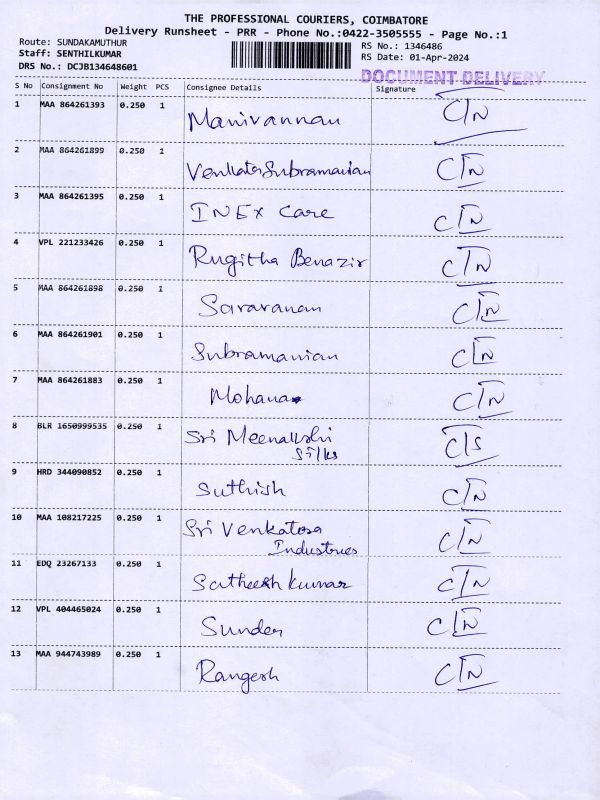 THE PROFESSIONAL COURIERS, COIMBATORE
Delivery Runsheet - PRR - Phone No.:0422-3505555 - Page No.:1
Route: SUNDAKAMUTHUR RS No.: 1346486
Staff: SENTHILKUMAR RS Date: 01-Apr-2024
DRS No.: DCJB134648601
DOCUMENT DELIVERY
S No Consignment No Weight PCS Consignee Details Signature
1 MAA 864261393 0.250 1 Manivannan C/N
2 MAA 864261899 0.250 1 VenkataSubramanian C/N
3 MAA 864261395 0.250 1 INEX Care C/N
4 VPL 221233426 0.250 1 Rugitha Benazir C/N
5 MAA 864261898 0.250 1 Saravanan C/N
6 MAA 864261901 0.250 1 Subramanian C/N
7 MAA 864261883 0.250 1 Mohana C/N
8 BLR 1650999535 0.250 1 Sri Meenakshi C/S
Silks
9 HRD 344090852 0.250 1 Suthish C/N
10 MAA 108217225 0.250 1 Sri Venkatesa C/N
Industries
11 EDQ 23267133 0.250 1 Satheesh kumar C/N
12 VPL 404465024 0.250 1 Sunder C/N
13 MAA 944743989 0.250 1 Rangesh C/N